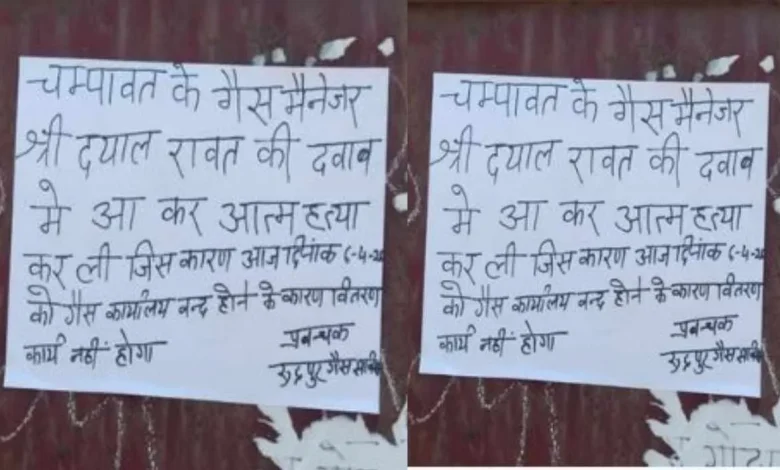 चम्पावत के गैस मैनेजर
श्री दयाल रावत की दवाब
मे आ कर आत्महत्या
कर ली जिस कारण आज दिनांक 6-4-
को गैस कार्यालय बन्द होने के कारण वितरण
कार्य नहीं होगा
प्रबन्धक
रुद्रपुर गैस
चम्पावत के गैस मैनेजर
श्री दयाल रावत की दवाब
मे आ कर आत्महत्या
कर ली जिस कारण आज दिनांक 6-4-
को गैस कार्यालय बन्द होने के कारण वितरण
कार्य नहीं होगा
प्रबन्धक
रुद्रपुर गैस